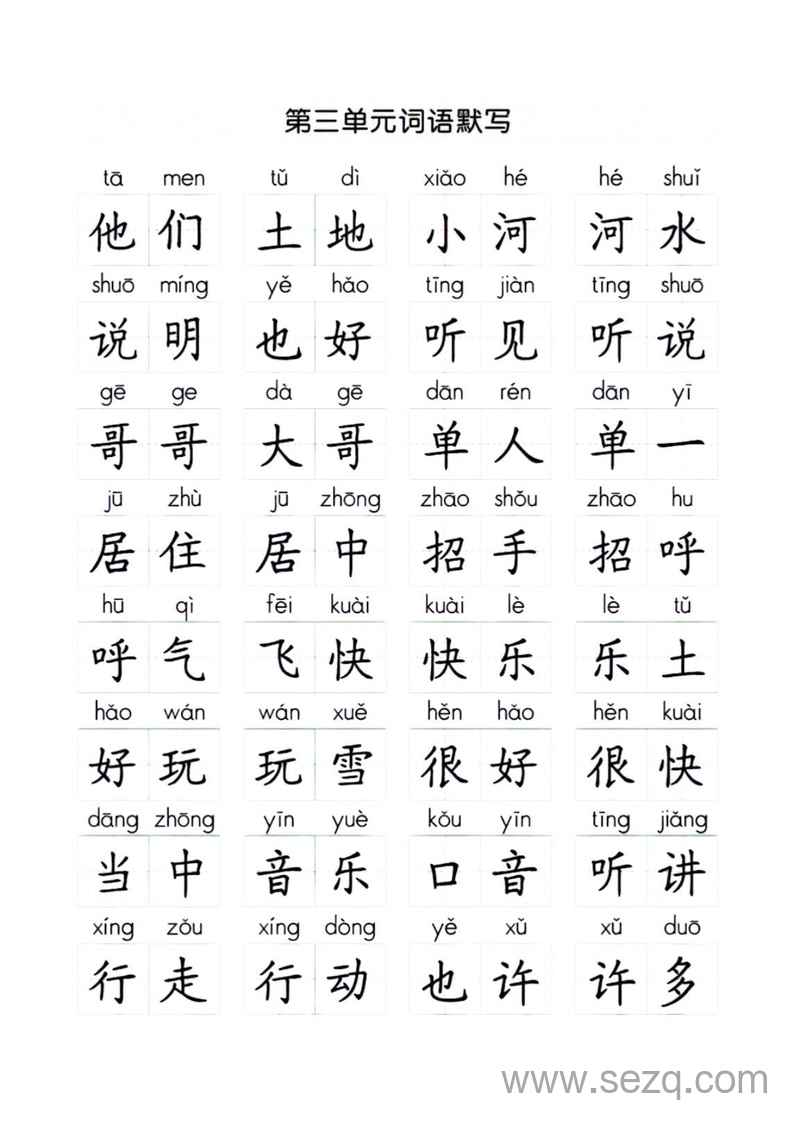 第三单元词语默写
tā men tǔ dì xiǎo hé hé shuǐ
他们 土地 小河 河水
shuō míng yě hǎo tīng jiàn tīng shuō
说明 也好 听见 听说
gē ge dà gē dān rén dān yī
哥哥 大哥 单人 单一
jū zhù jū zhōng zhāo shǒu zhāo hu
居住 居中 招手 招呼
hū qì fēi kuài kuài lè lè tǔ
呼气 飞快 快乐 乐土
hǎo wán wán xuě hěn hǎo hěn kuài
好玩 玩雪 很好 很快
dāng zhōng yīn yuè kǒu yīn tīng jiǎng
当中 音乐 口音 听讲
xíng zǒu xíng dòng yě xǔ xǔ duō
行走 行动 也许 许多
www.sezq.com